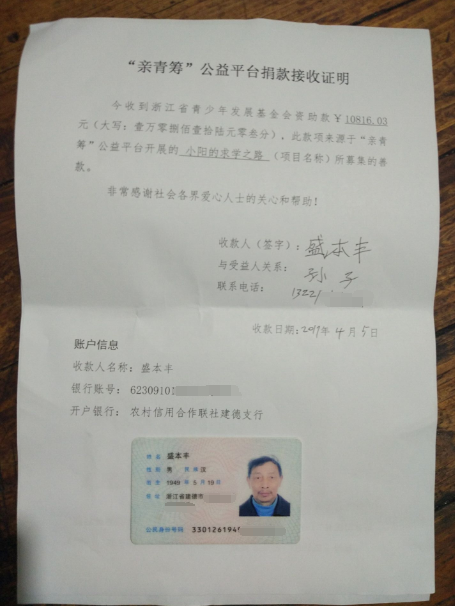 “亲青筹”公益平台捐款接收证明
今收到浙江省青少年发展基金会资助款￥10816.03
元（大写：壹万零捌佰壹拾陆元零叁分），此款项来源于“亲青
筹”公益平台开展的 小阳的求学之路 （项目名称）所募集的善
款。
非常感谢社会各界爱心人士的关心和帮助！
收款人（签字）：盛本丰
与受益人关系：孙子
联系电话：13221
收款日期:2019年4月5日
账户信息
收款人名称：盛本丰
银行账号：6230910
开户银行：农村信用合作联社建德支行
姓名 盛本丰
性别 男 民族 汉
出生 1949 年 5 月 19 日
住址 浙江省建德市
公民身份号码 330126194